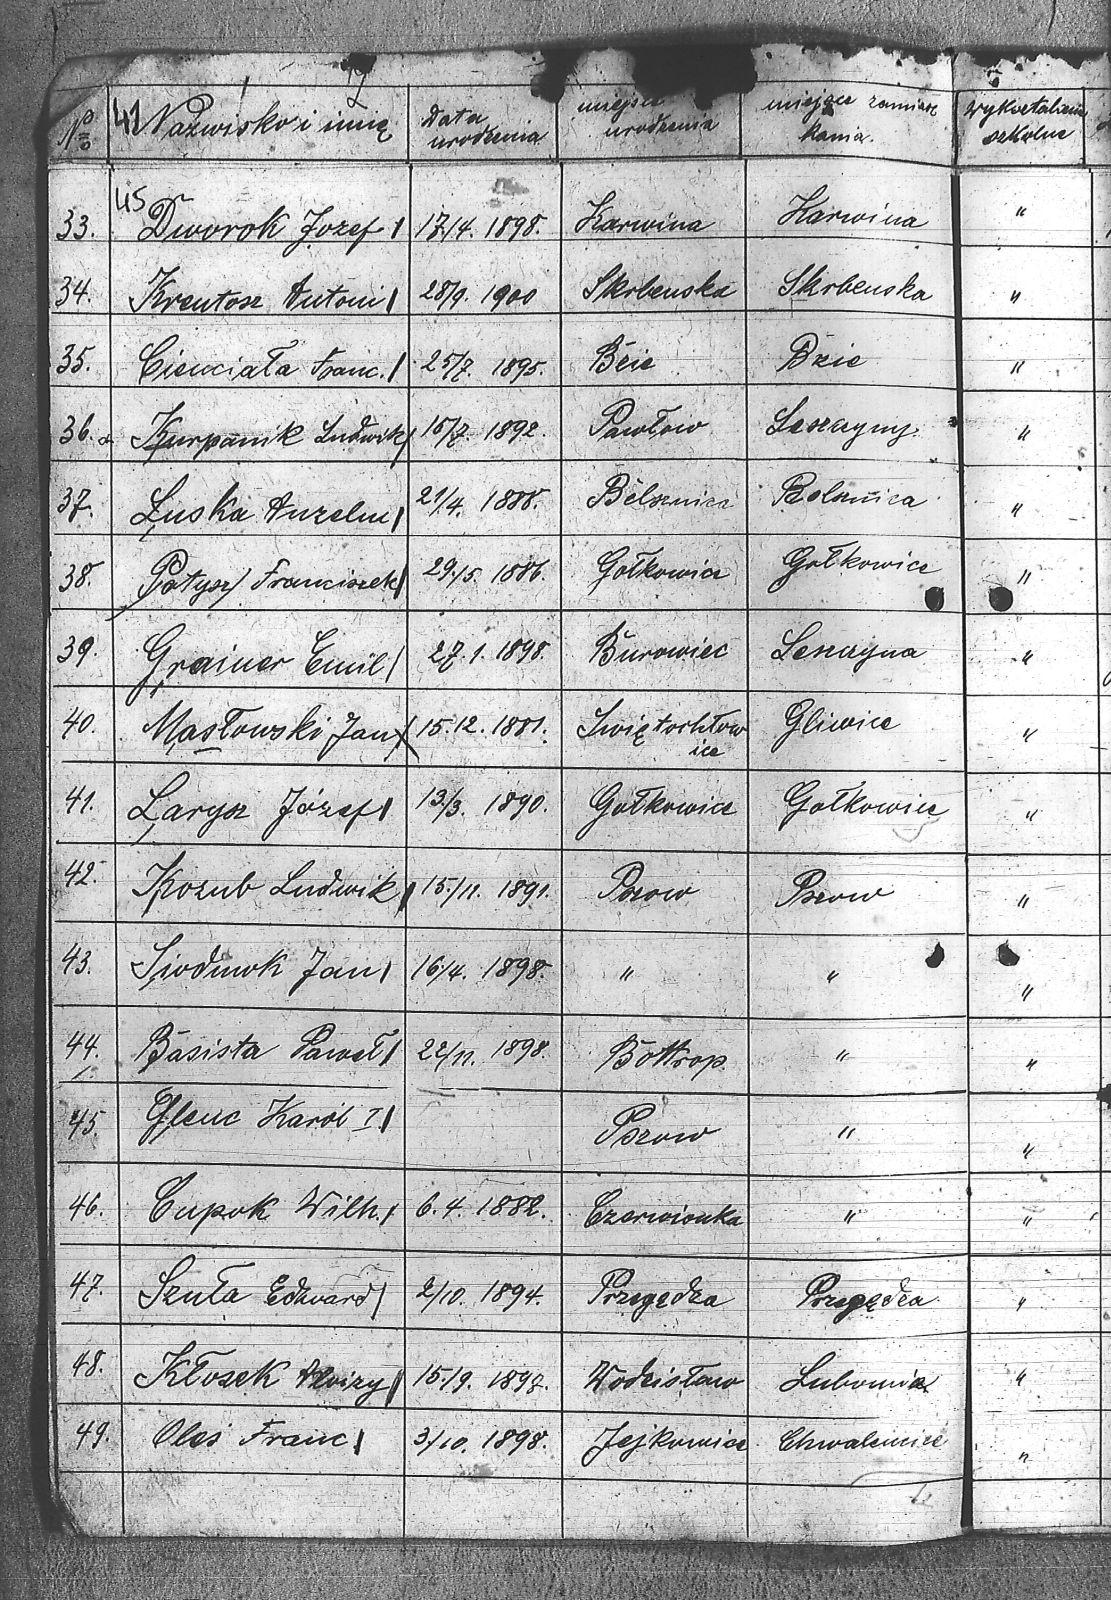 No 41 Nazwisko i imię Data urodzenia miejsce urodzenia miejsce zamieszkania. Wykształcenie szkolne
45
33. Dworok Jozef 17/4. 1898. Karwina Karwina "
34. Krentosz Antoni 28/9. 1900 Skrbenska Skrbenska "
35. Cienciała Franc. 25/7. 1895. Bzie Bzie "
36. Kurpanik Ludwik 15/7. 1892. Pawłow Leszczyny "
37. Łuska Anzelm 21/4. 1888. Bełsznica Belsznica "
38. Potysz Franciszek 29./5. 1886. Gołkowice Gołkowice "
39. Grainer Emil 27.1. 1898. Burowiec Leszczyna "
40. Masłowski Jan 15.12.1881. Swiętochłowice Gliwice "
41. Larysz Józef 13./3. 1890. Gołkowice Gołkowice "
42. Kozub Ludwik 15./11. 1891. Pszow Pszow "
43. Siodmok Jan 16/4. 1898. " " "
44. Basista Paweł 22/11. 1898. Bottrop " "
45. Glenc Karól I. Pszow " "
46. Cupok Wilh. 6. 4. 1882. Czerwionka " "
47. Szuła Edward 2/10. 1894. Przegędza Przegędza "
48. Kłosek Aloizy 15./9. 1898. Wodzisław Lubomia "
49. Oleś Franc 3/10. 1898. Jejkowice Chwalęcice "